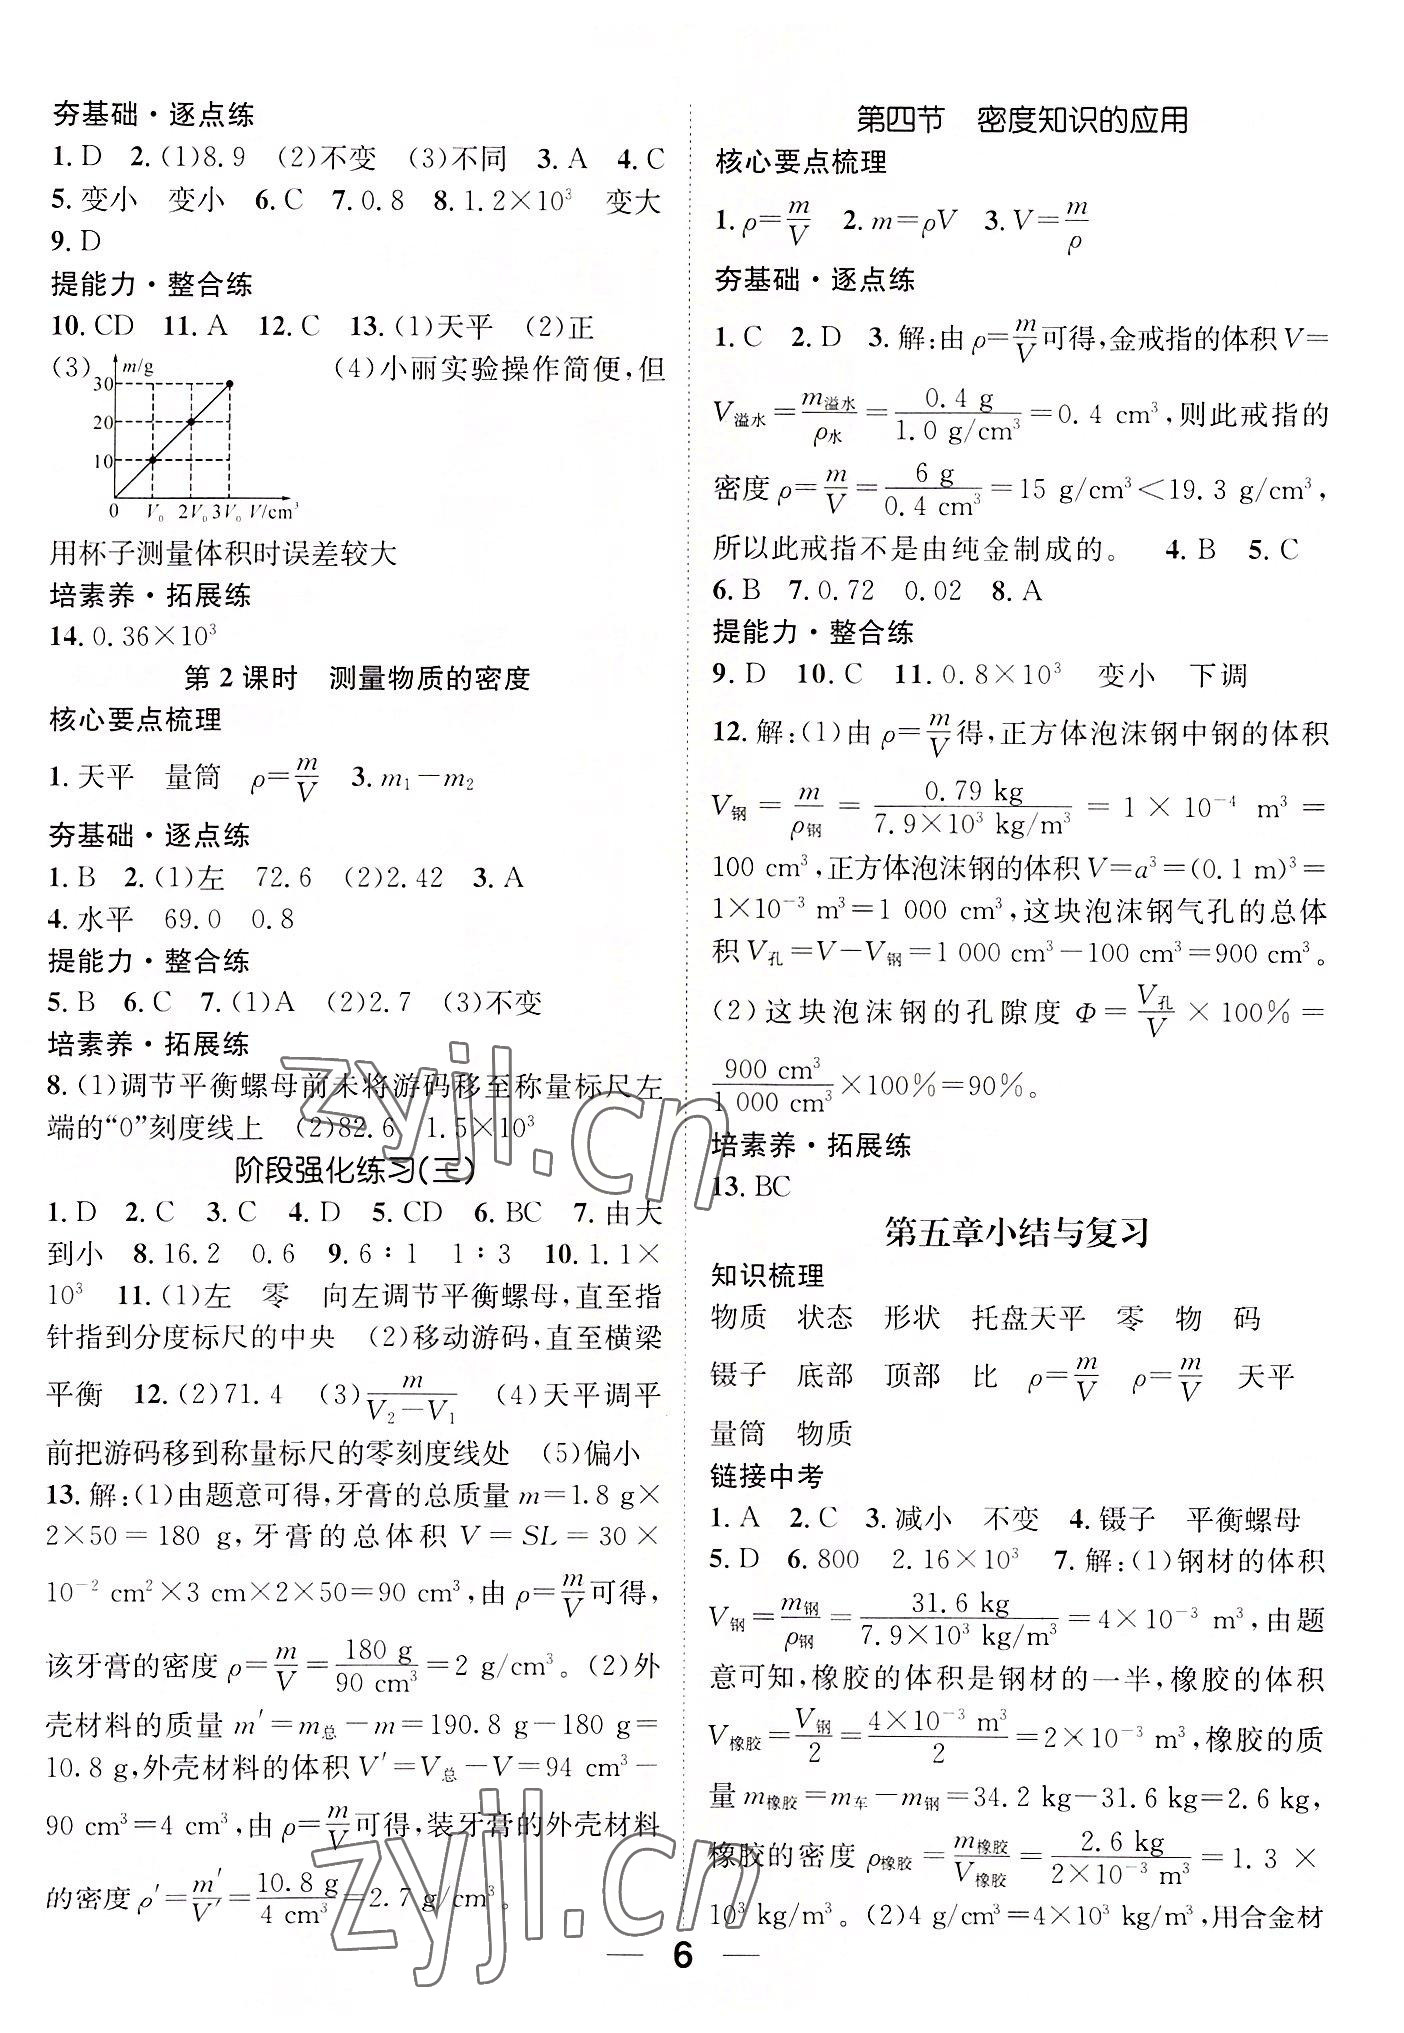 夯基础·逐点练
1.D 2.(1)8.9 (2)不变 (3)不同 3.A 4.C
5.变小 变小 6.C 7.0.8 8.1.2×10³ 变大
9.D
提能力·整合练
10.CD 11.A 12.C 13.(1)天平 (2)正
(3) (4)小丽实验操作简便,但
m/g
30
20
10
0 V₀ 2V₀ 3V₀ V/cm³
用杯子测量体积时误差较大
培素养·拓展练
14.0.36×10³
第2课时 测量物质的密度
核心要点梳理
1.天平 量筒 ρ=m/V 3.m₁-m₂
夯基础·逐点练
1.B 2.(1)左 72.6 (2)2.42 3.A
4.水平 69.0 0.8
提能力·整合练
5.B 6.C 7.(1)A (2)2.7 (3)不变
培素养·拓展练
8.(1)调节平衡螺母前未将游码移至称量标尺左
端的“0”刻度线上 (2)82.6 1.5×10³
阶段强化练习(三)
1.D 2.C 3.C 4.D 5.CD 6.BC 7.由大
到小 8.16.2 0.6 9.6∶1 1∶3 10.1.1×
10³ 11.(1)左 零 向左调节平衡螺母,直至指
针指到分度标尺的中央 (2)移动游码,直至横梁
平衡 12.(2)71.4 (3)m/(V₂-V₁) (4)天平调平
前把游码移到称量标尺的零刻度线处 (5)偏小
13.解:(1)由题意可得,牙膏的总质量m=1.8 g×
2×50=180 g,牙膏的总体积V=SL=30×
10⁻² cm²×3 cm×2×50=90 cm³,由ρ=m/V可得,
该牙膏的密度ρ=m/V=180 g/90 cm³=2 g/cm³。(2)外
壳材料的质量m′=m总-m=190.8 g-180 g=
10.8 g,外壳材料的体积V′=V总-V=94 cm³-
90 cm³=4 cm³,由ρ=m/V可得,装牙膏的外壳材料
的密度ρ′=m′/V′=10.8 g/4 cm³=2.7 g/cm³。
第四节 密度知识的应用
核心要点梳理
1.ρ=m/V 2.m=ρV 3.V=m/ρ
夯基础·逐点练
1.C 2.D 3.解:由ρ=m/V可得,金戒指的体积V=
V溢水=m溢水/ρ水=0.4 g/1.0 g/cm³=0.4 cm³,则此戒指的
密度ρ=m/V=6 g/0.4 cm³=15 g/cm³<19.3 g/cm³,
所以此戒指不是由纯金制成的。 4.B 5.C
6.B 7.0.72 0.02 8.A
提能力·整合练
9.D 10.C 11.0.8×10³ 变小 下调
12.解:(1)由ρ=m/V得,正方体泡沫钢中钢的体积
V钢=m/ρ钢=0.79 kg/7.9×10³ kg/m³=1×10⁻⁴ m³=
100 cm³,正方体泡沫钢的体积V=a³=(0.1 m)³=
1×10⁻³ m³=1 000 cm³,这块泡沫钢气孔的总体
积V孔=V-V钢=1 000 cm³-100 cm³=900 cm³。
(2)这块泡沫钢的孔隙度Φ=V孔/V×100%=
900 cm³/1 000 cm³×100%=90%。
培素养·拓展练
13.BC
第五章小结与复习
知识梳理
物质 状态 形状 托盘天平 零 物 码
镊子 底部 顶部 比 ρ=m/V ρ=m/V 天平
量筒 物质
链接中考
1.A 2.C 3.减小 不变 4.镊子 平衡螺母
5.D 6.800 2.16×10³ 7.解:(1)钢材的体积
V钢=m钢/ρ钢=31.6 kg/7.9×10³ kg/m³=4×10⁻³ m³,由题
意可知,橡胶的体积是钢材的一半,橡胶的体积
V橡胶=V钢/2=4×10⁻³ m³/2=2×10⁻³ m³,橡胶的质
量m橡胶=m车-m钢=34.2 kg-31.6 kg=2.6 kg,
橡胶的密度ρ橡胶=m橡胶/V橡胶=2.6 kg/2×10⁻³ m³=1.3×
10³ kg/m³。(2)4 g/cm³=4×10³ kg/m³,用合金材
— 6 —
zyjl.cn
zyjl.cn